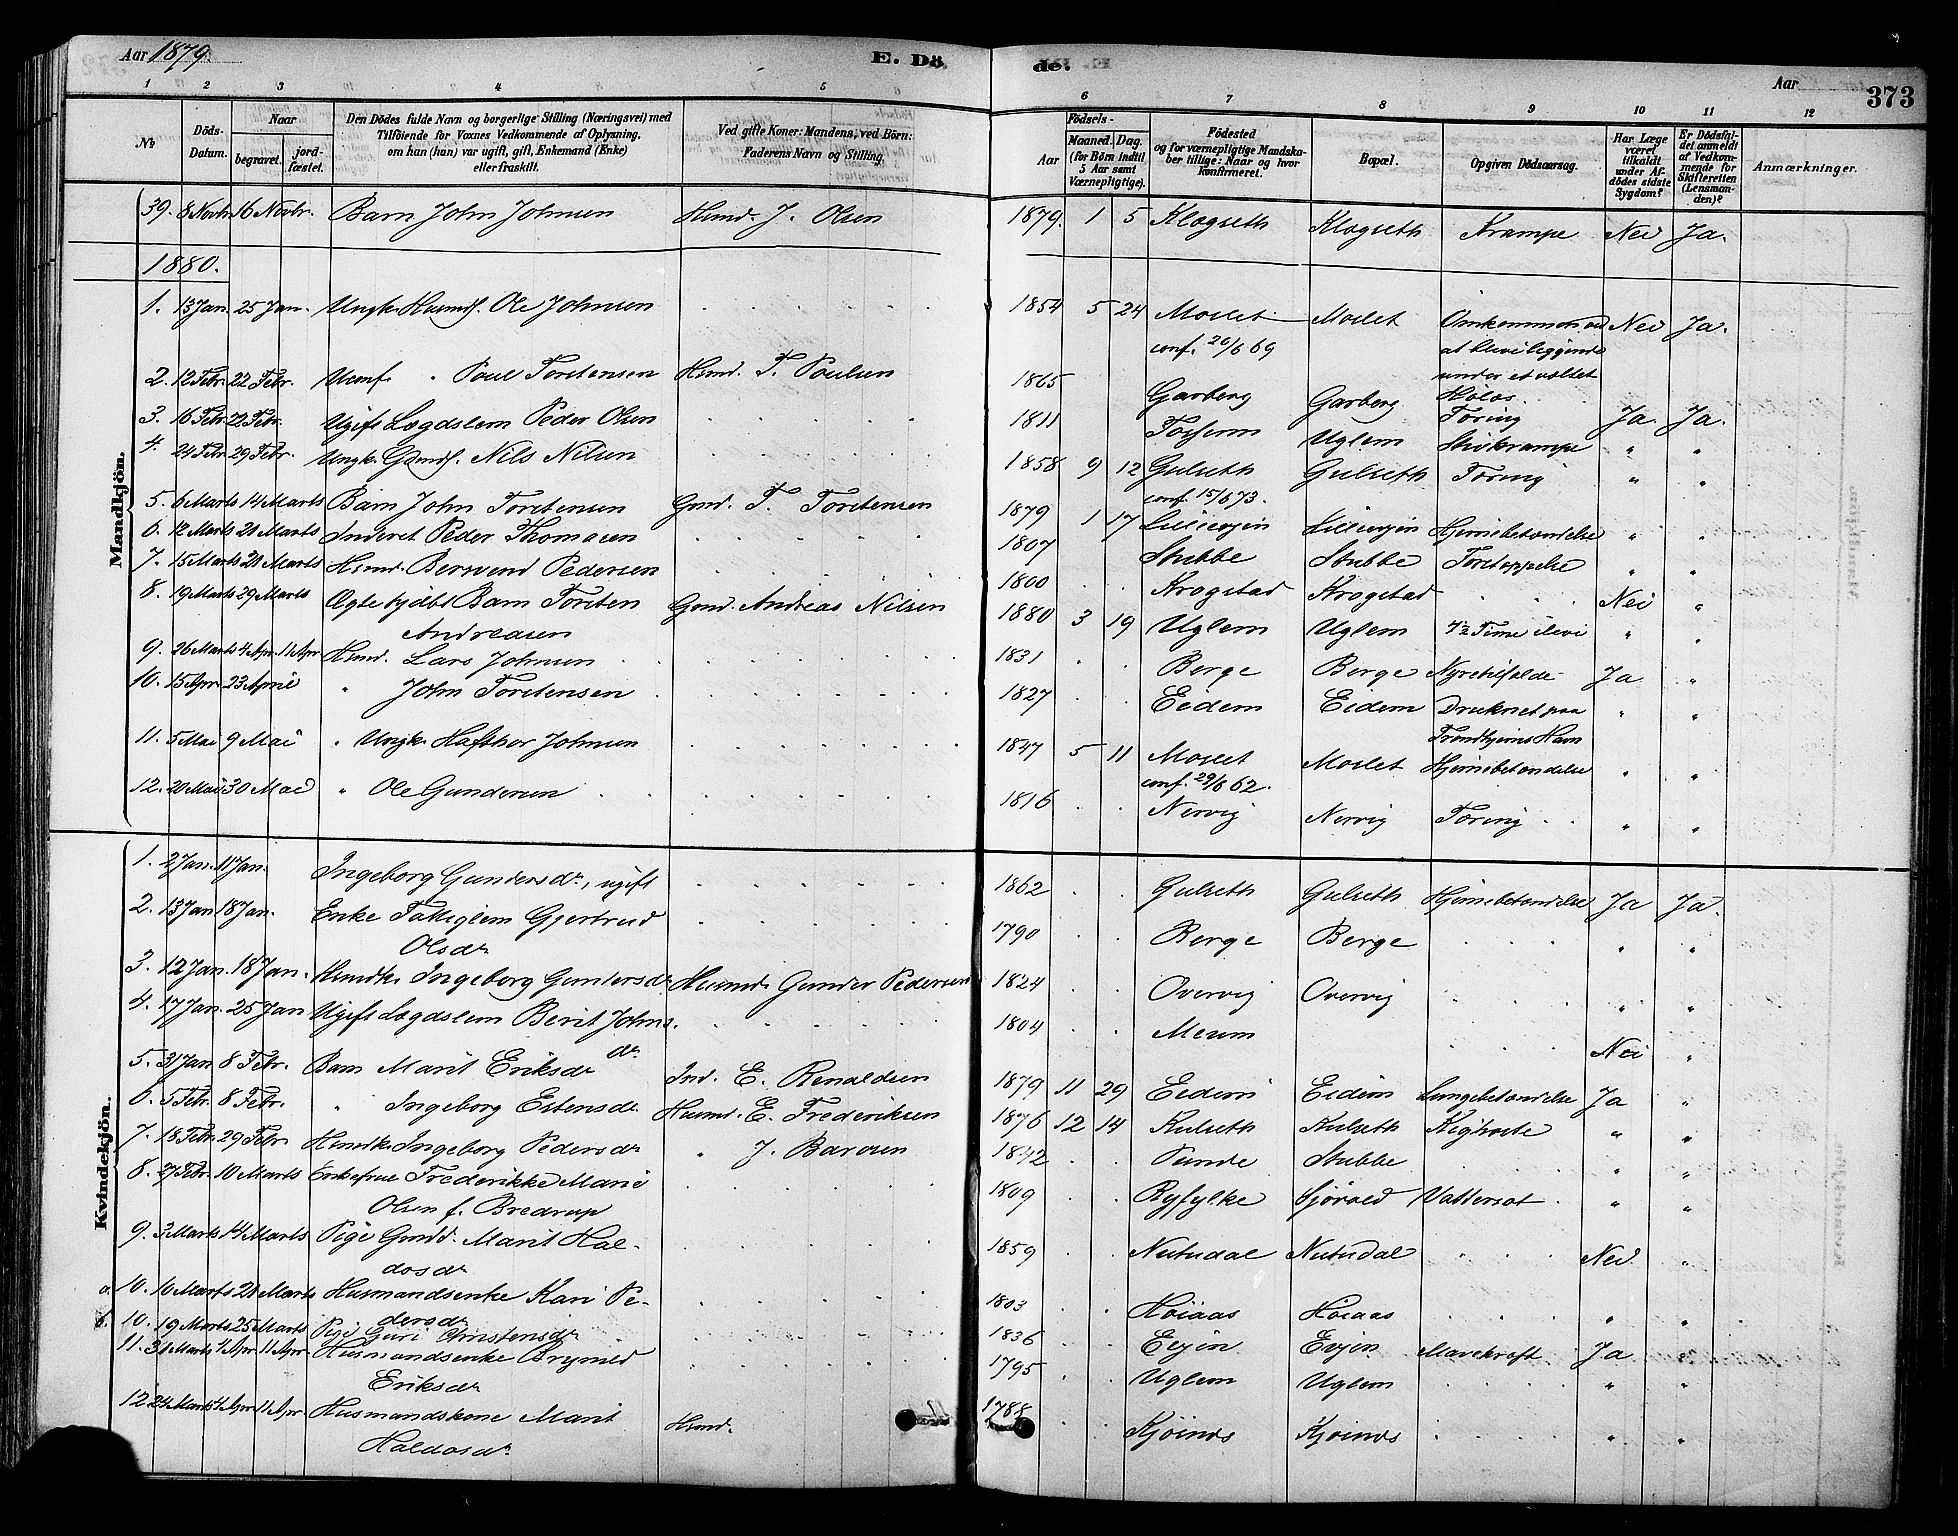 Aar 1879.
E. Dö
de.
Aar
373
1 2 3 4 5 6 7 8 9 10 11 12
No
Döds-Datum.
Naar
begravet.
jord-fæstet.
Den Dödes fulde Navn og borgerlige Stilling (Næringsvei) med
Tilföiende for Voxnes Vedkommende af Oplysning,
om han (hun) var ugift, gift, Enkemand (Enke)
eller fraskilt.
Ved gifte Koner: Mandens, ved Börn:
Faderens Navn og Stilling.
Födsels-
Aar
Maaned. Dag.
(for Börn indtil
5 Aar samt
Værnepligtige).
Födested
og for værnepligtige Mandska-
ber tillige: Naar og hvor
Konfirmeret.
Bopæl.
Opgiven Dödsaarsag.
Har Læge
været
tilkaldt
under Af-
dödes sidste
Sygdom?
Er Dödsfal-
det anmeldt
af Vedkom-
mende for
Skifteretten
(Lensman-
den)?
Anmærkninger.
39. 8 Novbr. 16 Novbr. Barn John Johnsen Husmd. J. Olsen 1879. 1 5 Klogseth Klogseth Krampe Nei Ja.
1880.
Mandkjön.
1. 13 Jan. 25 Jan. Ungk. Husmds. Ole Johnsen 1854 5 24 Moslet conf. 20/6 69 Moslet Omkommen ved at blive liggende under et væltet Nei Ja.
2. 12 Febr. 22 Febr. Uconf. " Poul Torstensen Husmd. T. Poulsen 1865 Garberg Garberg
3. 16 Febr. 22 Febr. Ugift Lægdslem Peder Olsen 1811 Uglem Ja. Ja.
4. 24 Febr. 29 Febr. Ungk. Gmds. Nils Nilsen 1858 9 12 Gulseth conf. 15/6 73. Gulseth Tæring " "
5. 6 Marts 14 Marts Barn John Torstensen Gmd. T. Torstensen 1879 1 17 Lillevejen Lillevejen Hjernebetændelse " "
6. 12 Marts 20 Marts Inderst Peder Thomasen 1807 Stubbe Stubbe Forstoppelse " "
7. 15 Marts 20 Marts Husmd. Bersvend Pedersen 1800 Krogstad Krogstad Nei "
8. 19 Marts 29 Marts Ægte hjdbt. Barn Torsten Andreasen Gmd. Andreas Nilsen 1880 3 19 Uglem Uglem 4½ Time ilive " "
9. 26 Marts 4 Apr. 11 Apr. Husmd. Lars Johnsen 1831 Berge Berge Nyretilfælde Ja "
10. 15 Apr. 23 April " John Torstensen 1827 Eidem Eidem Druknet paa Trondhjems Havn " "
11. 5 Mai 9 Mai " Ungk. Hafthor Johnsen 1847 5 11 Moslet conf. 29/6 62. Moslet Hjernebetændelse " "
12. 20 Mai 30 Mai " Ole Gundersen 1816 Nervig Nervig Tæring " "
Kvindekjön.
1. 2 Jan. 11 Jan. Ingeborg Gundersdr., ugift 1862 Gulseth Gulseth Hjernebetændelse Ja Ja.
2. 13 Jan. 18 Jan. Enke Fattiglem Gjertrud Olsdr. 1790 Berge Berge " "
3. 12 Jan. 18 Jan. Husmdk. Ingeborg Guntersdr. Husmd. Gunder Pedersen 1824 Overvig Overvig " "
4. 17 Jan. 25 Jan Ugift Lægdslem Berit Johnsdr. 1804 Merum Nei "
5. 31 Jan 8 Febr. Barn Marit Eriksdr. Ind. E. Renaldsen 1879 11 29 Eidem Eidem Lungebetændelse Ja "
6. 5 Febr. 8 Febr. " Ingeborg Estensdr. Husmd. E. Frederiksen 1876 12 14 Kulseth Kulseth Kighoste " "
7. 18 Febr. 29 Febr. Husmdk. Ingeborg Pedersdr. " J. Barosen 1842 Stubbe " "
8. 27 Febr. 10 Marts Enkefrue Frederikke Marie Olsen f. Bredrup 1809 Ryfylke Vattersot " "
9. 3 Marts 14 Marts Pige Gmdd. Marit Haldosdr. 1859 Nustudal Nustudal Nei "
a. 10. 10 Marts 20 Marts Husmandsenke Kari Pedersdr. 1803 Höiaas Höiaas " "
b. 10. 19 Marts 25 Marts Pige Guri Christensdr. 1836 Evjen Evjen Mavekræft Ja "
11. 31 Marts 4 Apr. 11 Apr. Husmandsenke Brynild Eriksdr. 1795 Uglem Uglem " "
12. 24 Marts 4 Apr. 11 Apr. Husmandskone Marit Haldosdr. Husmd. 1788 Kjöinos Kjöinos " "